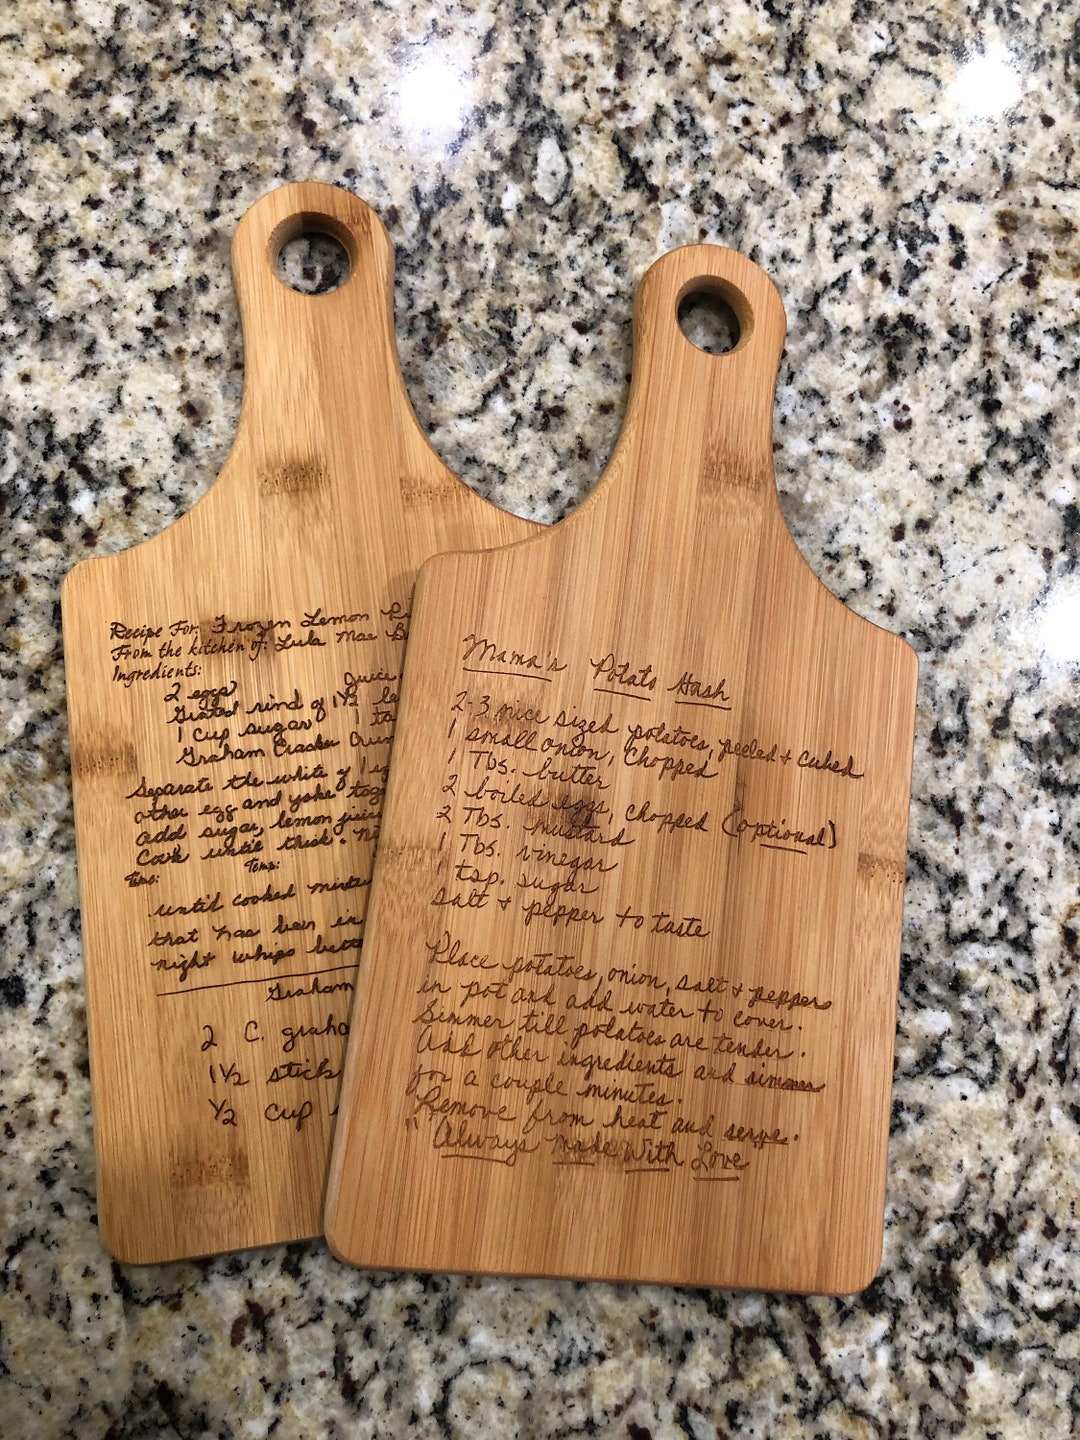 Recipe For: Frozen Lemon
From the kitchen of: Lula Mae
Ingredients:
2 eggs
Juice
Grated rind of 1½
1 cup sugar 1
Graham Cracker
Separate the white of 1
other egg and yoke
add sugar, lemon juice
Cook until thick.
Time: Temp:
until cooked
that has been in
night whips
Graham
2 C.
1½ stick
½ cup
Mama's Potato Hash
2-3 nice sized potatoes, peeled + cubed
1 small onion, Chopped
1 Tbs. butter
2 boiled eggs, chopped (optional)
2 Tbs. mustard
1 Tbs. vinegar
1 tsp. sugar
salt + pepper to taste
Place potatoes, onion, salt + peppers
in pot and add water to cover.
Simmer till potatoes are tender.
Add other ingredients and simmer
for a couple minutes.
Remove from heat and serve.
"Always Made With Love